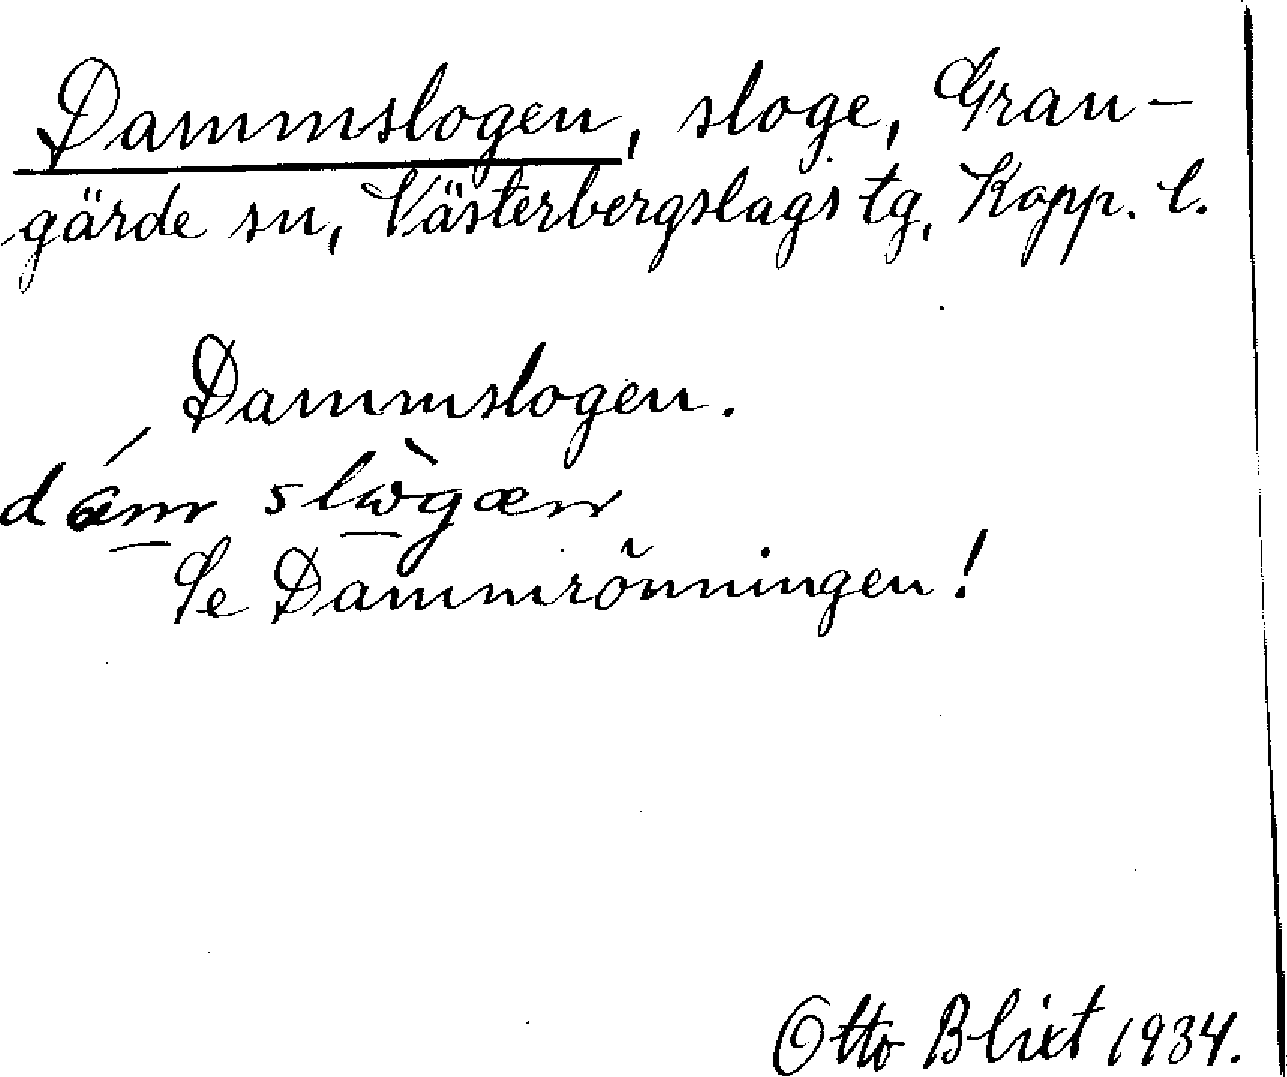 Dammslogen, sloge, Gran-
gärde sn, Västerbergslags tg, Kopp. l.
Dammslogen.
Se Dammrönningen!
Otto Blixt 1934.